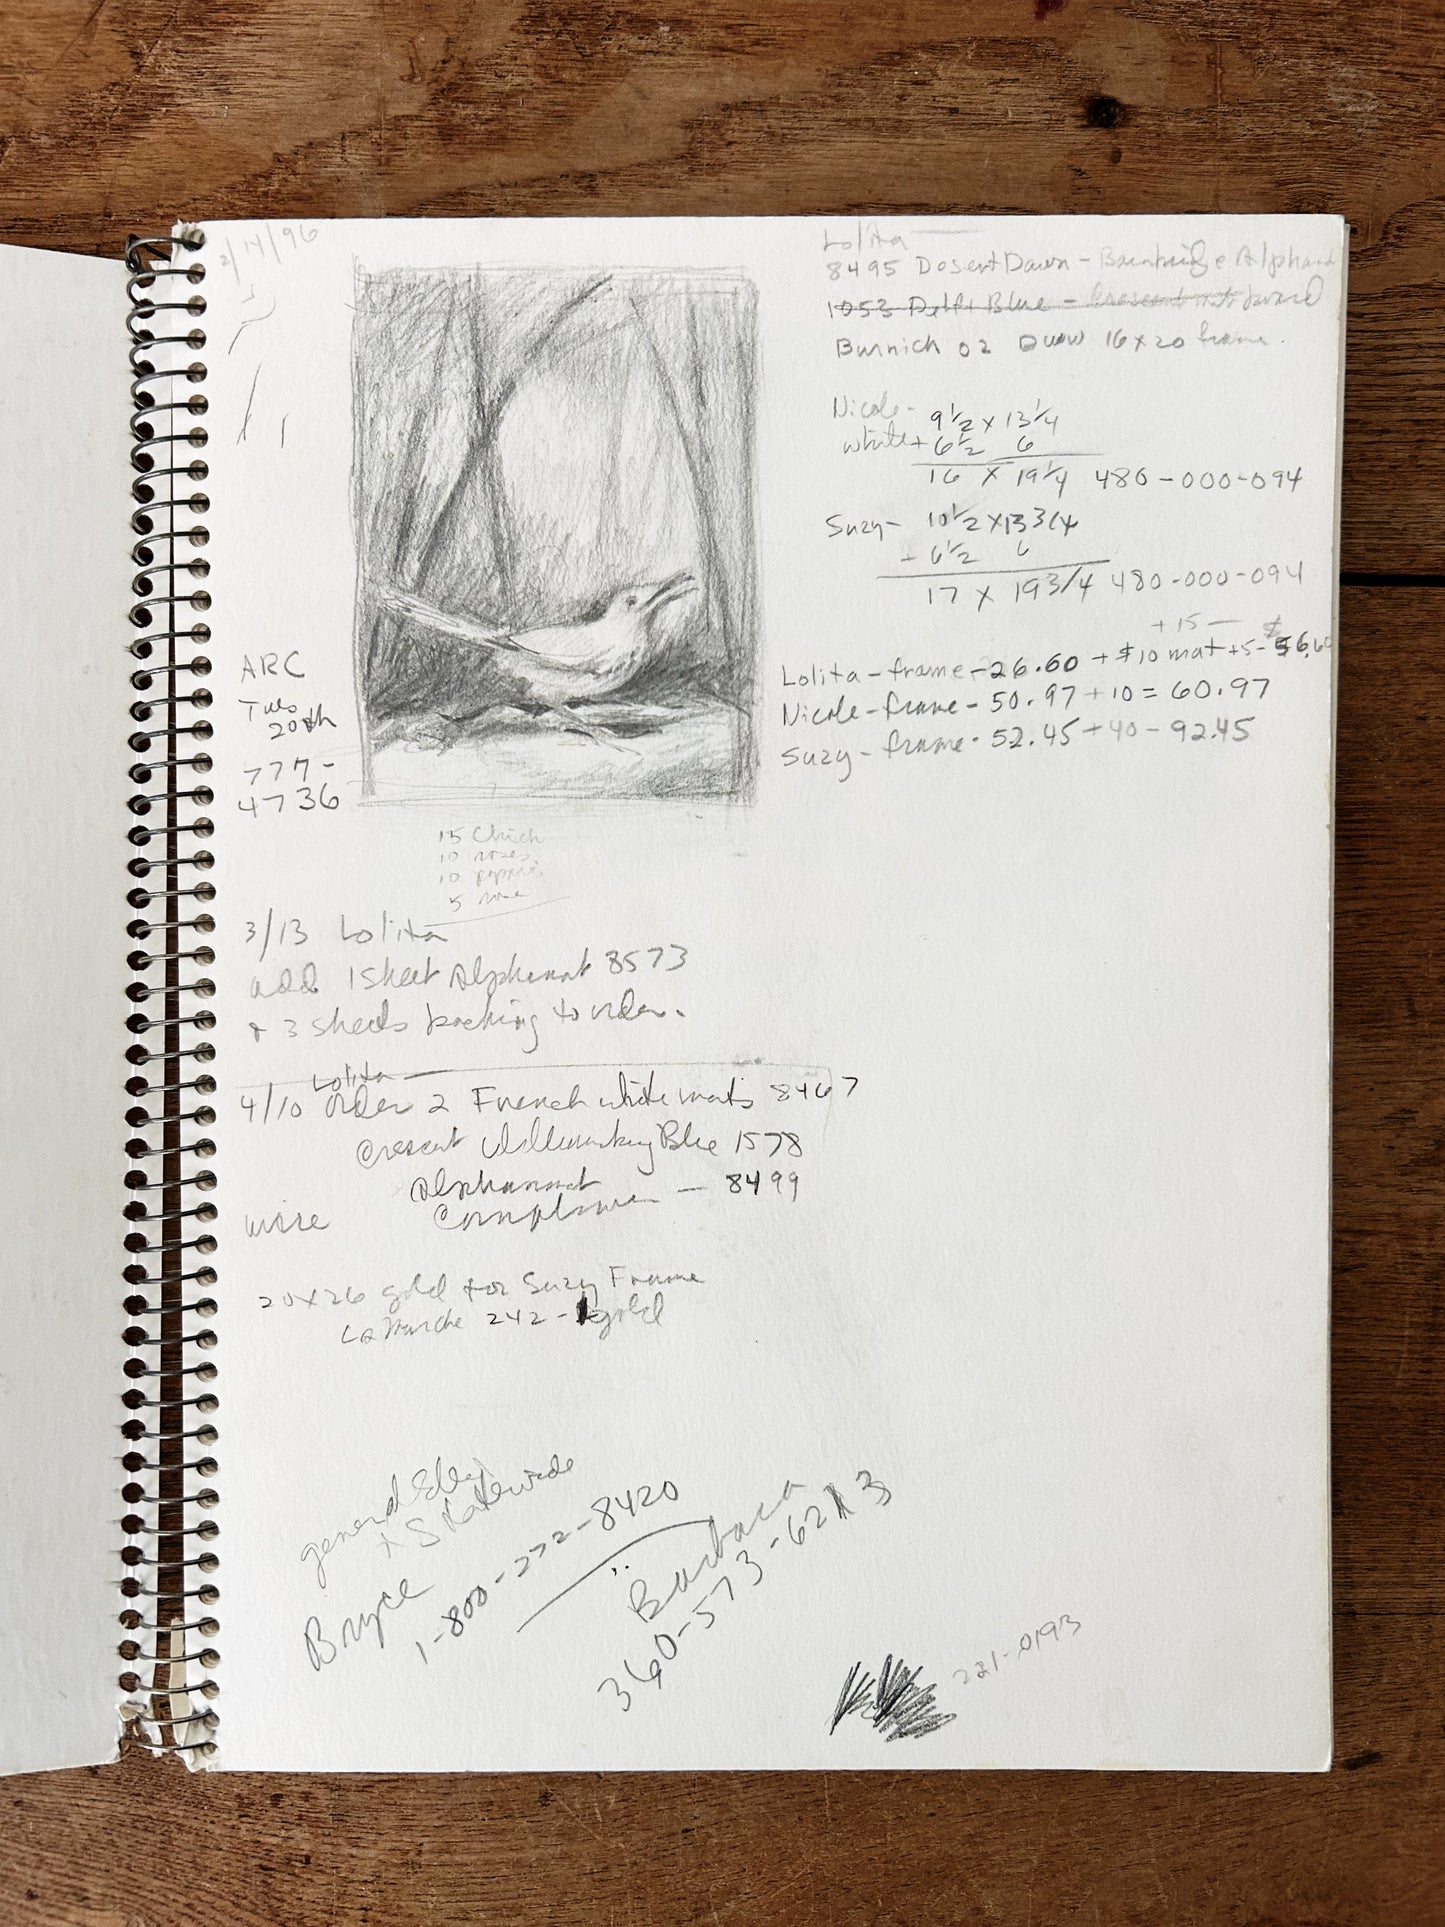 2/14/96
Lolita
8495 Desert Dawn - Bainbridge Alphamat
1053 Delft Blue - Crescent mat board
Burnich 02 16x20 frame.
Nicole - 9 1/2 x 13 1/4
white + 6 1/2 6
16 x 19 1/4 480-000-094
Suzy - 10 1/2 x 13 3/4
+ 6 1/2 6
17 x 19 3/4 480-000-094
+15 —
Lolita - frame - 26.60 + $10 mat +5 - $56.60
Nicole - frame - 50.97 + 10 = 60.97
Suzy - frame - 52.45 + 40 - 92.45
ARC
Tues
20th
777-
4736
15 Chick
10 roses
10 poppies
5
3/13 Lolita
add 1 sheet Alphamat 8573
+ 3 sheets backing to order.
Lolita —
4/10 Order 2 French white mats 8467
Crescent Williamsburg Blue 1578
Alphamat
— 8499
wire
20x26 gold for Suzy Frame
La Marche 242 - gold
general
+ Statewide
Bryce
1-800-272-8420
Barbara
360-573-6213
221-0193